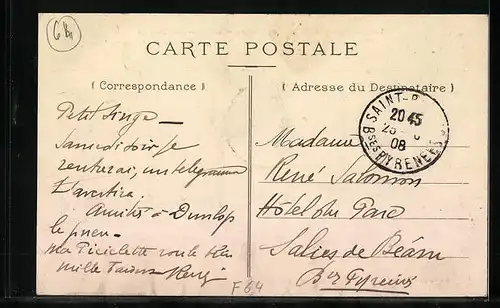 6 Bij
CARTE POSTALE
( Correspondance )
( Adresse du Destinataire )
SAINT-
20 45
08
Bses PYRENEES
Petit Singe —
Samedi soir je
rentrerai, un telegramme
t'avertira.
Amitiés à Dunlop
le pneu —
ma roule
mille
Madame
René Salomon
Hôtel du Parc
Salies de Béarn
Bses Pyrénées
F64